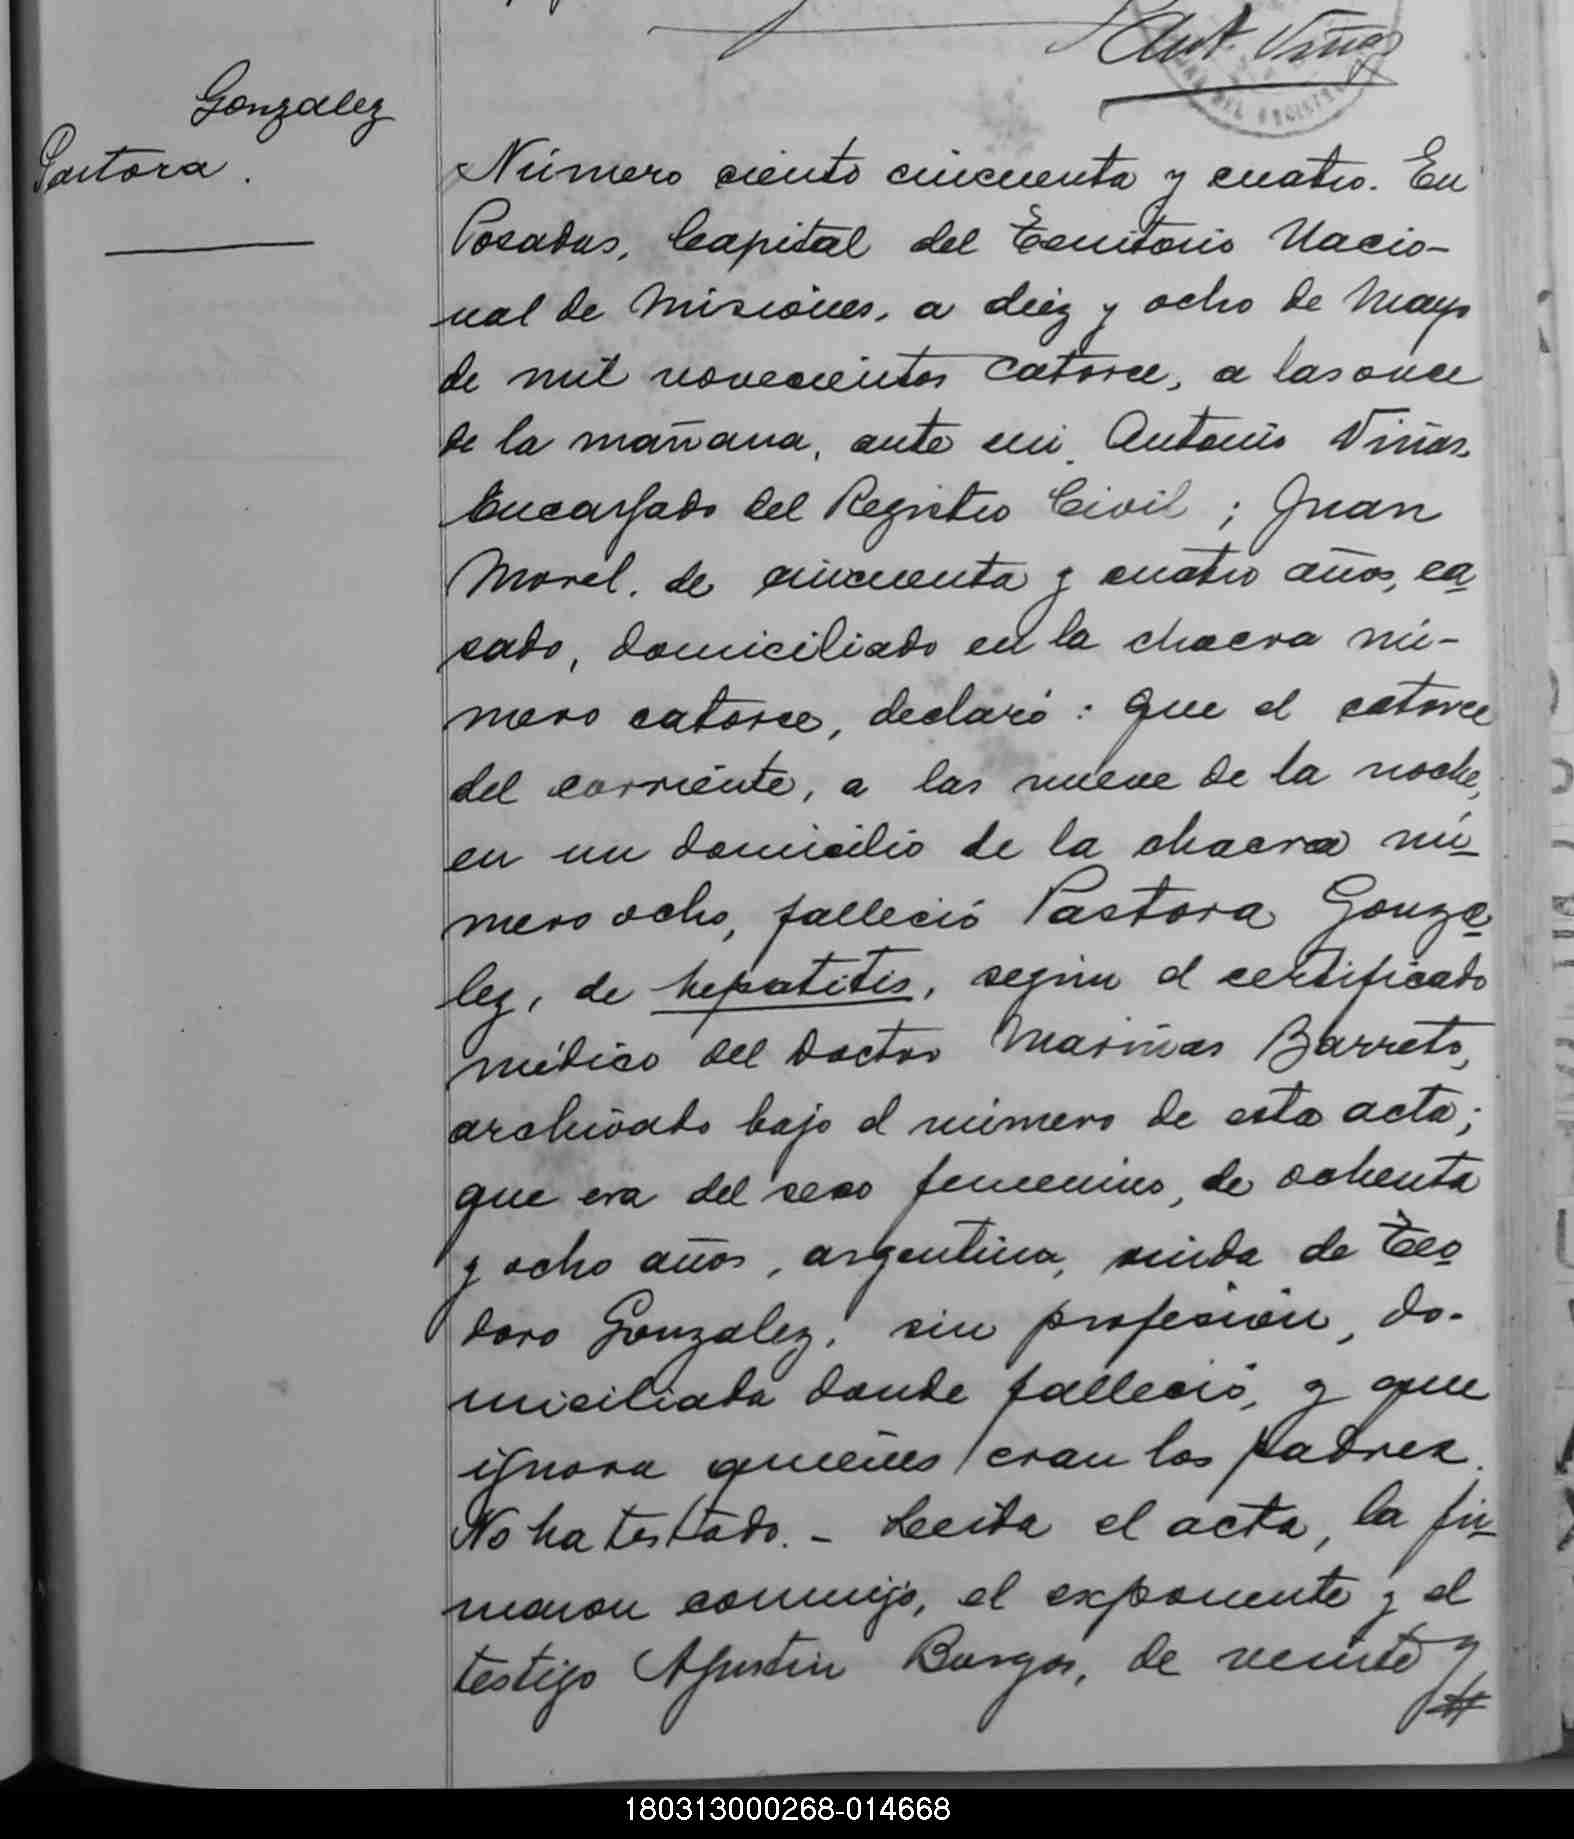 Ant. Viñas
Gonzalez
Pastora.
Número ciento cincuenta y cuatro. En
Posadas, Capital del Territorio Nacio-
nal de Misiones, a diez y ocho de Mayo
de mil novecientos catorce, a las once
de la mañana, ante mi, Antonio Viñas,
Encargado del Registro Civil; Juan
Morel, de cincuenta y cuatro años, ca
sado, domiciliado en la chacra nú-
mero catorce, declaró: Que el catorce
del corriente, a las nueve de la noche,
en un domicilio de la chacra nú
mero ocho, falleció Pastora Gonza
lez, de hepatitis, según el certificado
médico del doctor Mariñas Barreto,
archivado bajo el número de esta acta;
que era del sexo femenino, de ochenta
y ocho años, argentina, viuda de Teo
doro Gonzalez, sin profesión, do-
miciliada donde falleció, y que
ignora quienes eran los padres.
No ha testado. - Leida el acta, la fir
maron conmigo, el exponente y el
testigo Agustin Burgos, de veinte y
180313000268-014668